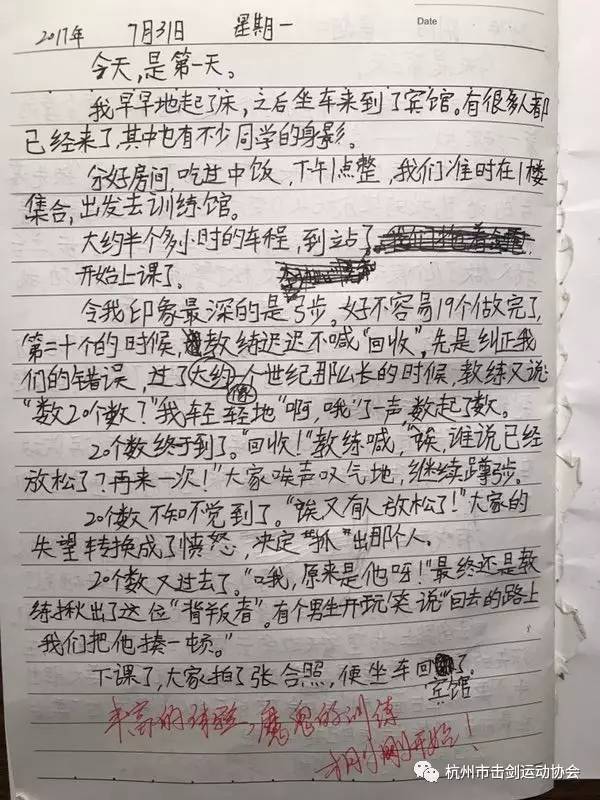 Date
2017年 7月31日 星期一
今天,是第一天。
我早早地起了床,之后坐车来到了宾馆。有很多人都
已经来了,其中也有不少同学的身影。
分好房间,吃过中饭,下午1点整,我们准时在1楼
集合,出发去训练馆。
大约半个多小时的车程,到站了,
开始上课了。
令我印象最深的是弓步。好不容易19个做完了,
第二十个的时候,教练迟迟不喊“回收”,先是纠正我
们的错误,过了大约像个世纪那么长的时候,教练又说:
“数20个数?”我轻轻地“啊,哦”了一声数起了数。
20个数终于到了。“回收!”教练喊,“诶,谁说已经
放松了?再来一次!”大家唉声叹气地,继续蹲弓步。
20个数不知不觉到了。“诶又有人放松了!”大家的
失望转换成了愤怒,决定“抓”出那个人。
20个数又过去了。“哦,原来是他呀!”最终还是教
练揪出了这位“背叛者”。有个男生开玩笑说“回去的路上
我们把他揍一顿。”
下课了,大家拍了张合照,便坐车回宾馆了。
丰富的体验,魔鬼的训练
刚刚开始!
杭州市击剑运动协会